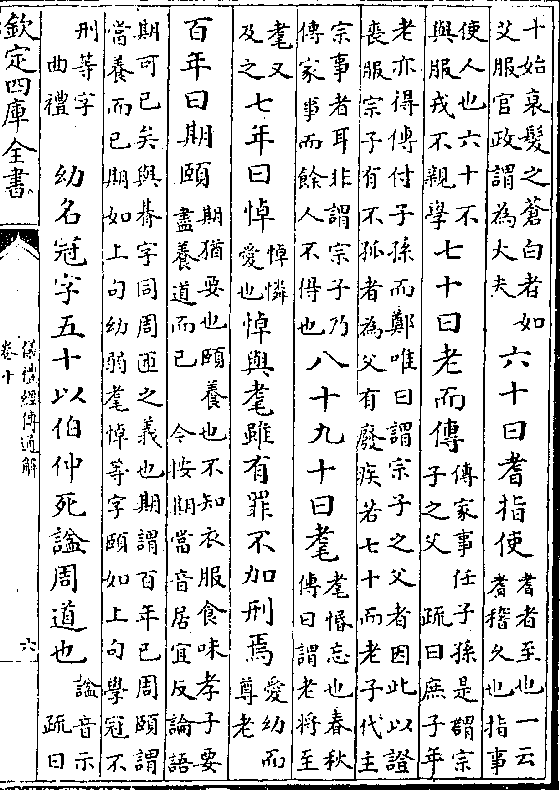 十始衰髮之蒼白者如
艾服官政謂為大夫
六十曰耆指使
耆者至也一云
耆稽久也指事
使人也六十不
與服戎不親學
七十曰老而傳
傳家事任子孫是謂宗
子之父　疏曰庶子年
老亦得傳付子孫而鄭唯曰謂宗子之父者因此以證
喪服宗子有不孤者為父有廢疾若七十而老子代主
宗事者耳非謂宗子乃
傳家事而餘人不得也
八十九十曰耄
耄惛忘也春秋
傳曰謂老將至
耄又
及之
七年曰悼
悼憐
愛也
悼與耄雖有罪不加刑焉
愛幼而
尊老
百年曰期頤
期猶要也頤養也不知衣服食味孝子要
盡養道而已　今按期當音居宜反論語
期可已矣與朞字同周匝之義也期謂百年已周頤謂
當養而已期如上句幼弱耄悼等字頤如上句學冠不
刑等字
曲禮
幼名冠字五十以伯仲死謚周道也
謚音示
疏曰
欽定四庫全書
儀禮經傳通解
卷十
六